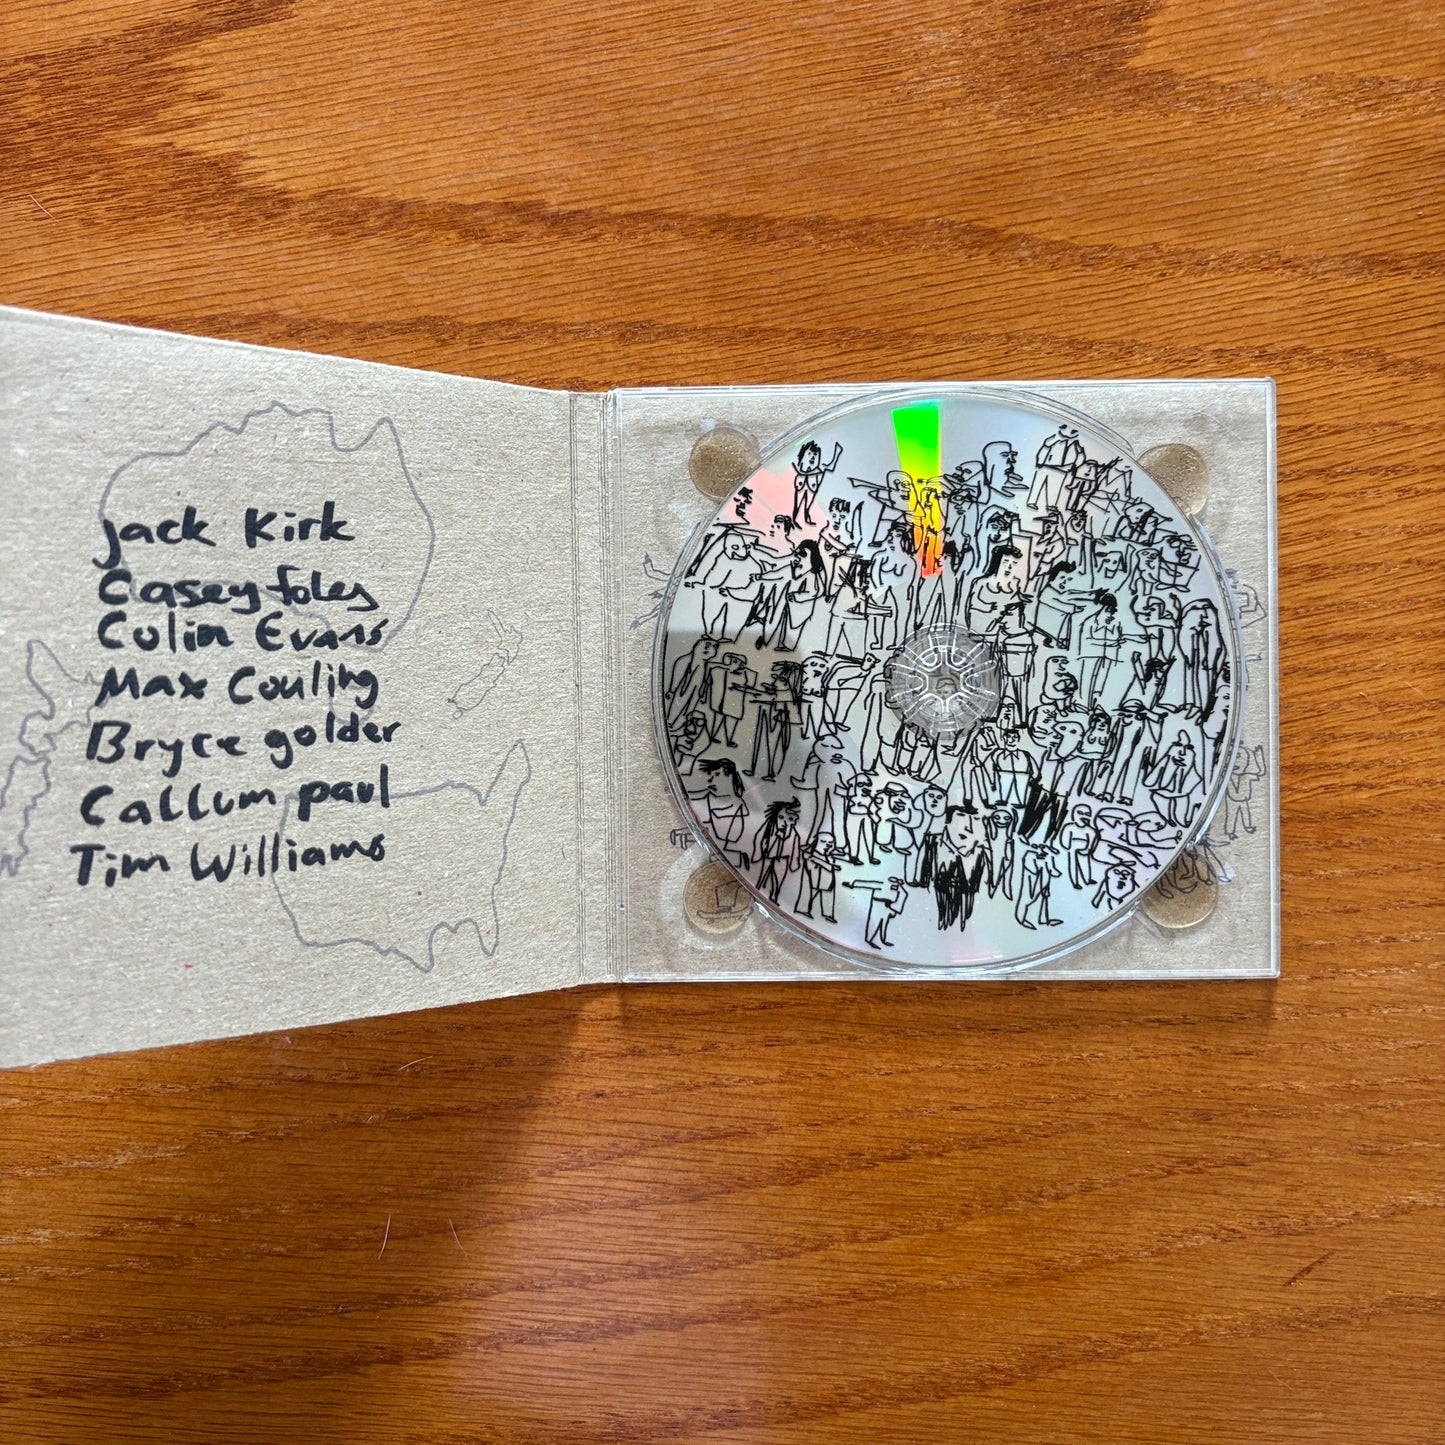 Jack Kirk
Casey foley
Colin Evans
Max Couling
Bryce golder
Callum paul
Tim Williams